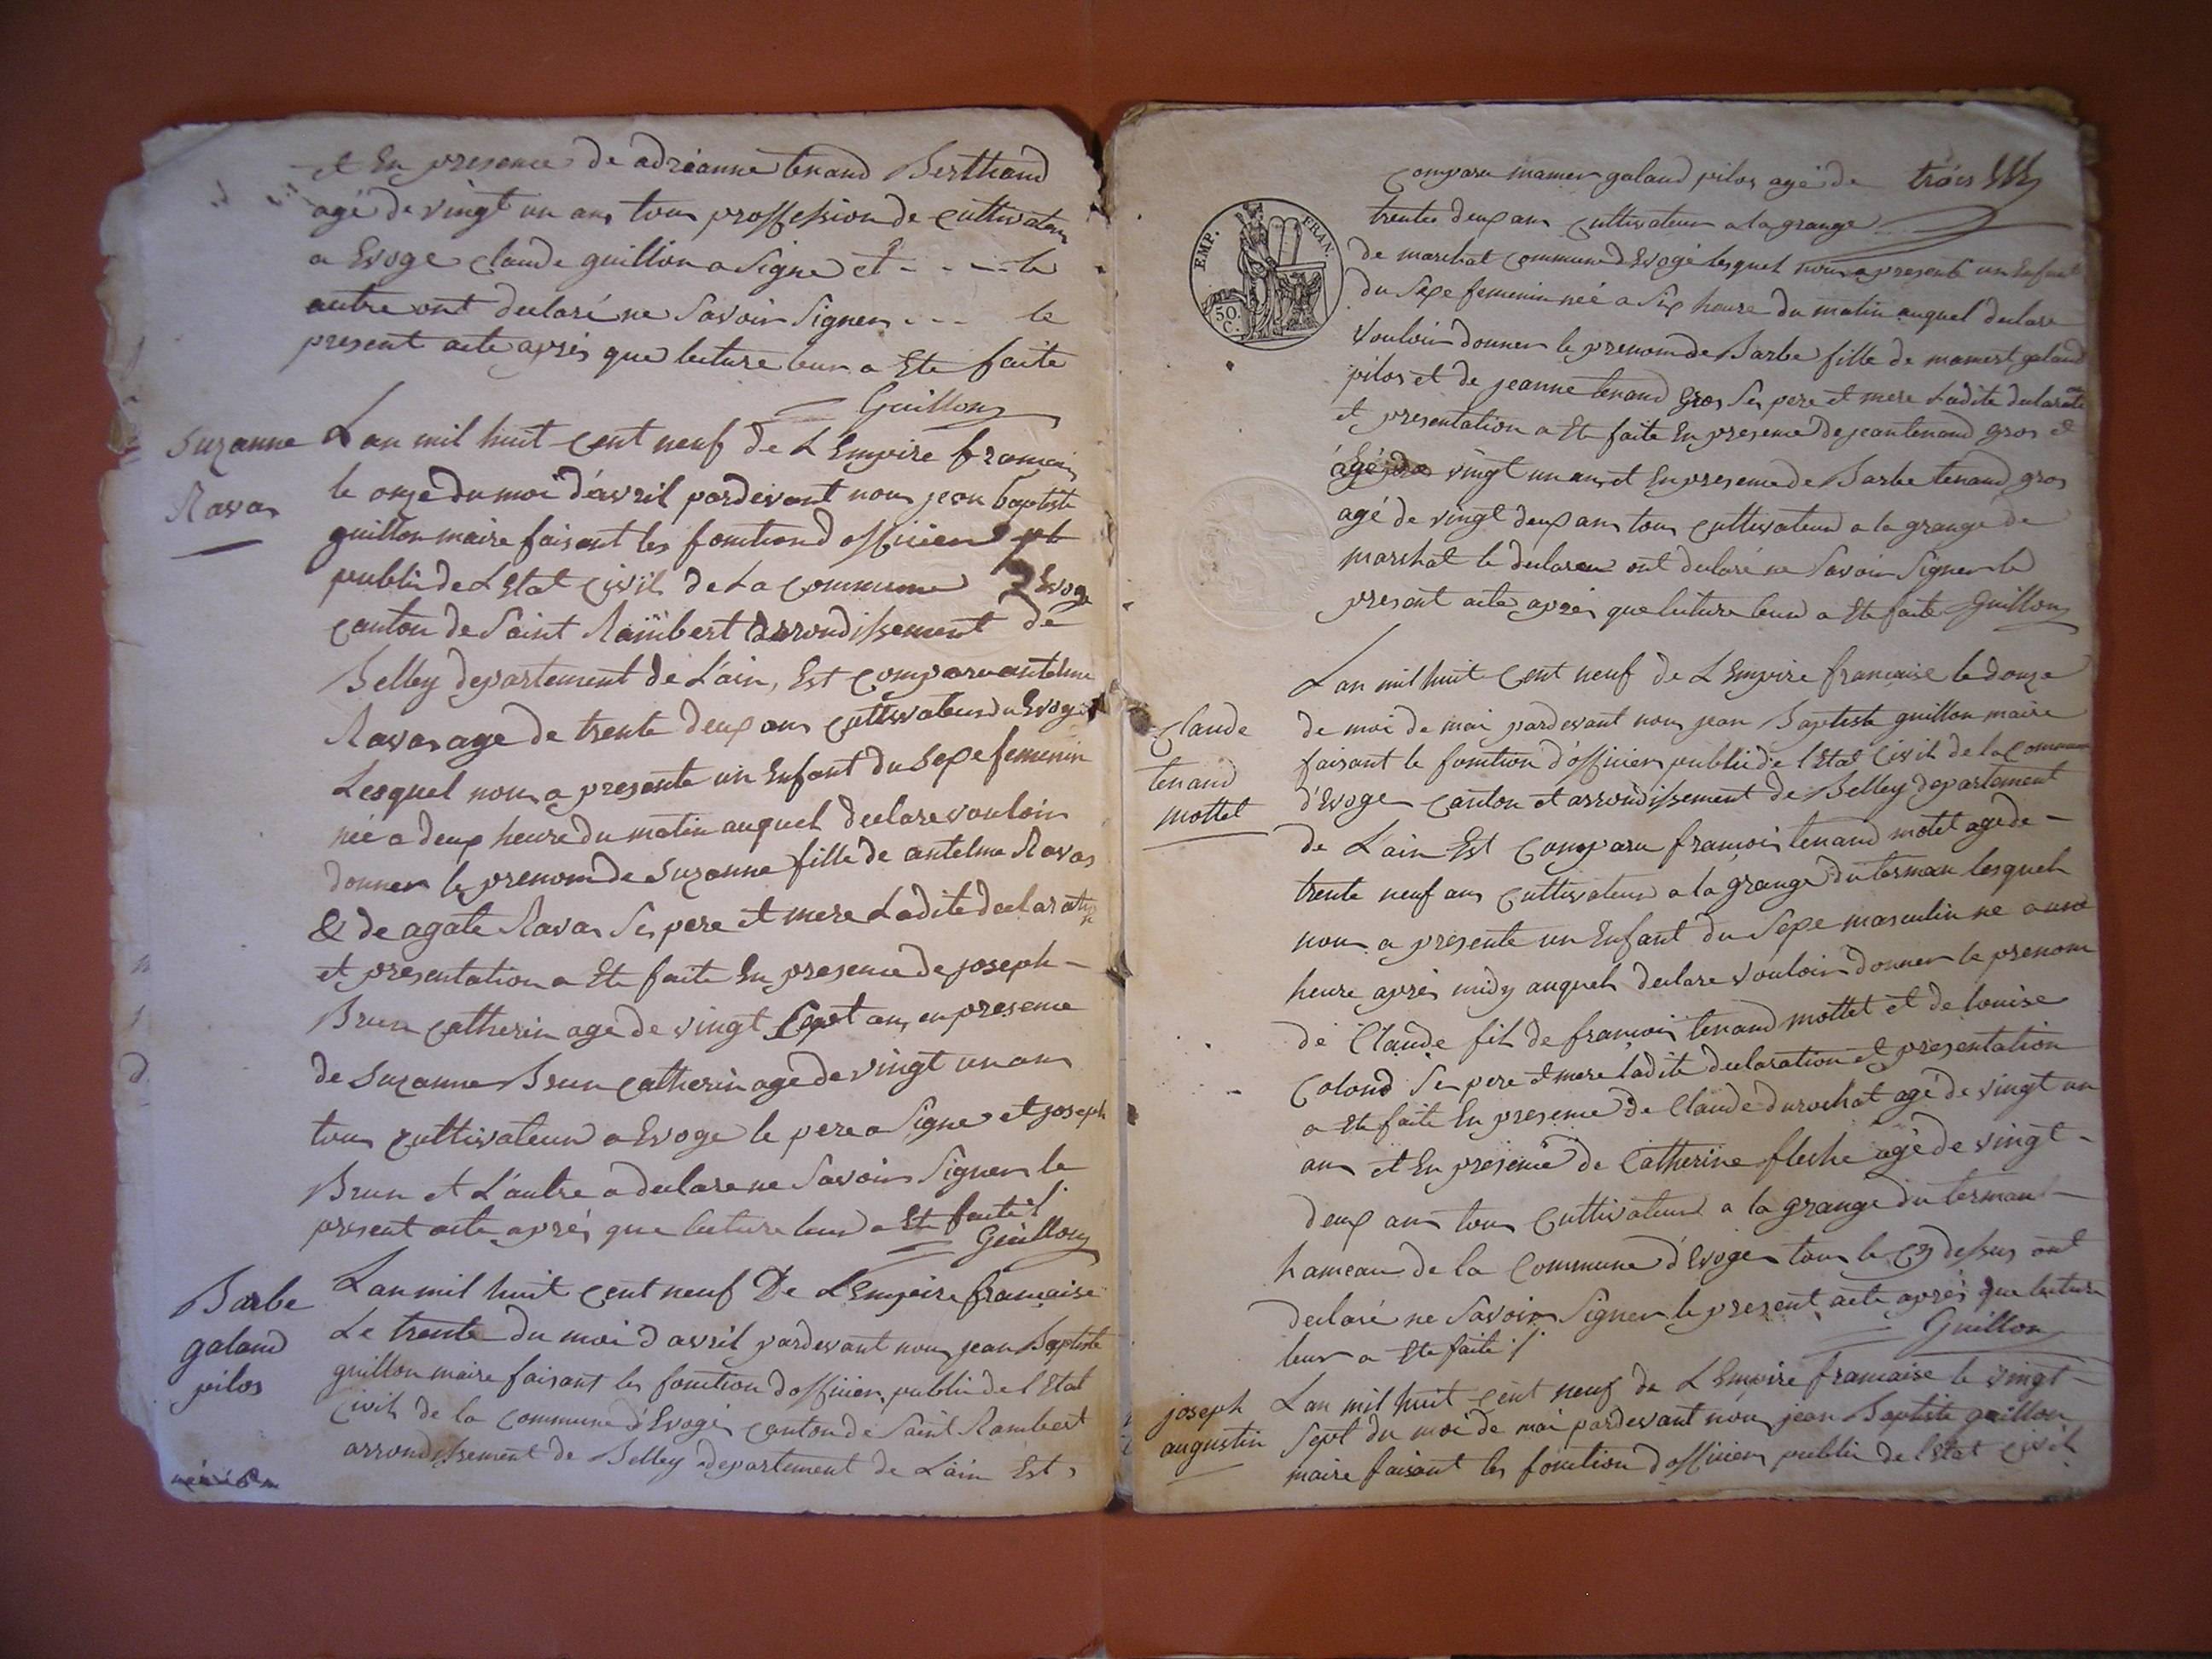 et En presence de adréanne tenand Berthand
agé de vingt un ans tous proffession de cultivateur
a Evoge Claude guillon a Signe et - - - - le
autre ont declaré ne Savoir Signer - - - le
present acte aprés que lecture leur a Ete faite
Guillon
Suzanne
Ravas
Lan mil huit cent neuf de L Empire francais
le onze du moi d'avril pardevant nous jean baptiste
guillon maire faisant les fonction d officier
public de L Etat Civil de La Commune D Evoge
canton de Saint Rambert arrondissement de
Belley departement de L'ain, Est comparu antelme
Ravas age de trente deux ans cultivateur du Evoge
Lesquel nous a presente un Enfant du Sexe femenin
née a deux heure du matin auquel declare vouloir
donner le prenom de Suzanne fille de antelme Ravas
& de agate Ravas Ses pere et mere Ladite declaration
et presentation a Ete faite En presence de joseph -
Brun catherin age de vingt Sept ans en presence
de Suzanne Brun catherin age de vingt un ans
tous cultivateur a Evoge le pere a Signe et joseph
Brun et L'autre a declare ne Savoir Signer le
present acte aprés que lecture leur a Ete faite !
Guillon
Barbe
galand
pilos
Lan mil huit cent neuf De L'Empire francaise
Le trente du moi d avril pardevant nous jean Baptiste
guillon maire faisant les fonction d officier public de l Etat
Civil de la Commune d'Evoge canton de Saint Rambert
arrondissement de Belley departement de L'ain Est
comparu mamer galand pilos agé de
trois
EMP. FRAN.
50 C.
trente deux ans cultivateur a la grange
de marchat Commune d Evoge lesquel nous a presente un Enfant
du Sexe femenin née a Six heure du matin auquel declare
vouloir donner le prenom de Barbe fille de mamert galand
pilos et de jeanne tenand gros Ses pere et mere Ladite declaration
et presentation a Ete faite En presence de jean tenand gros et
agé de vingt un ans et En presence de Barbe tenand gros
agé de vingt deux ans tous cultivateur a la grange de
marchat le declaran ont declaré ne Savoir Signer le
present acte aprés que lecture leur a Ete faite Guillon
Claude
tenand
mottet
Lan mil huit Cent neuf de L Empire francaise le douze
de moi de mai pardevant nous jean Baptiste guillon maire
faisant le fonction d'officier public de l Etat Civil de la Commune
d'Evoge canton et arrondissement de Belley departement
de L'ain Est Comparu francois tenand motet age de -
trente neuf ans cultivateur a la grange du terman lesquel
nous a presente un Enfant du Sexe masculin ne a une
heure aprés midy auquel declare vouloir donner le prenom
de Claude fils de francois tenand mottet et de louise
Colond Ses pere et mere ladite declaration et presentation
a Ete faite En presence de Claude durochat agé de vingt un
ans et En presence de Catherine fleche agé de vingt -
deux ans tous cultivateur a la grange du terman -
hameau de la Commune d'Evoge tous le cy dessus ont
declaré ne Savoir Signer le present acte aprés que lecture
leur a Ete faite !
Guillon
joseph
augustin
Lan mil huit cent neuf de L Empire francaise le vingt -
Sept du moi de mai pardevant nous jean Baptiste guillon
maire faisant les fonction d officier public de l Etat Civil